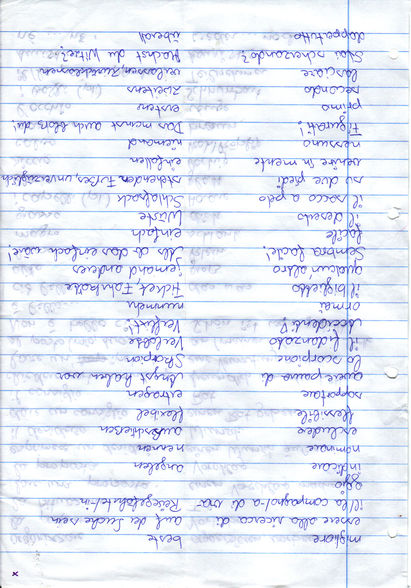 migliore beste
essere alla ricerca di auf der Suche sein
il/la compagno/-a di via- Reisegefährte/-in
ggio
indicare angeben
nominare nennen
escludere ausschließen
flessibile flexibel
sopportare ertragen
avere paura di Angst haben vor
lo scorpione Skorpion
il fidanzato Verlobte
Accidenti! Verflixt!
ormai nunmehr
il biglietto Ticket, Fahrkarte
qualcun'altro jemand anderes
Sembra facile! Als ob das einfach wäre!
facile einfach
il deserto Wüste
il sacco a pelo Schlafsack
su due piedi stehenden Fußes, unverzüglich
venire in mente einfallen
nessuno niemand
Figurati! Das meinst auch bloß du!
primo erstens
secondo zweitens
lasciare verlassen, zurücklassen
Stai scherzando? Machst du Witze?
dappertutto überall